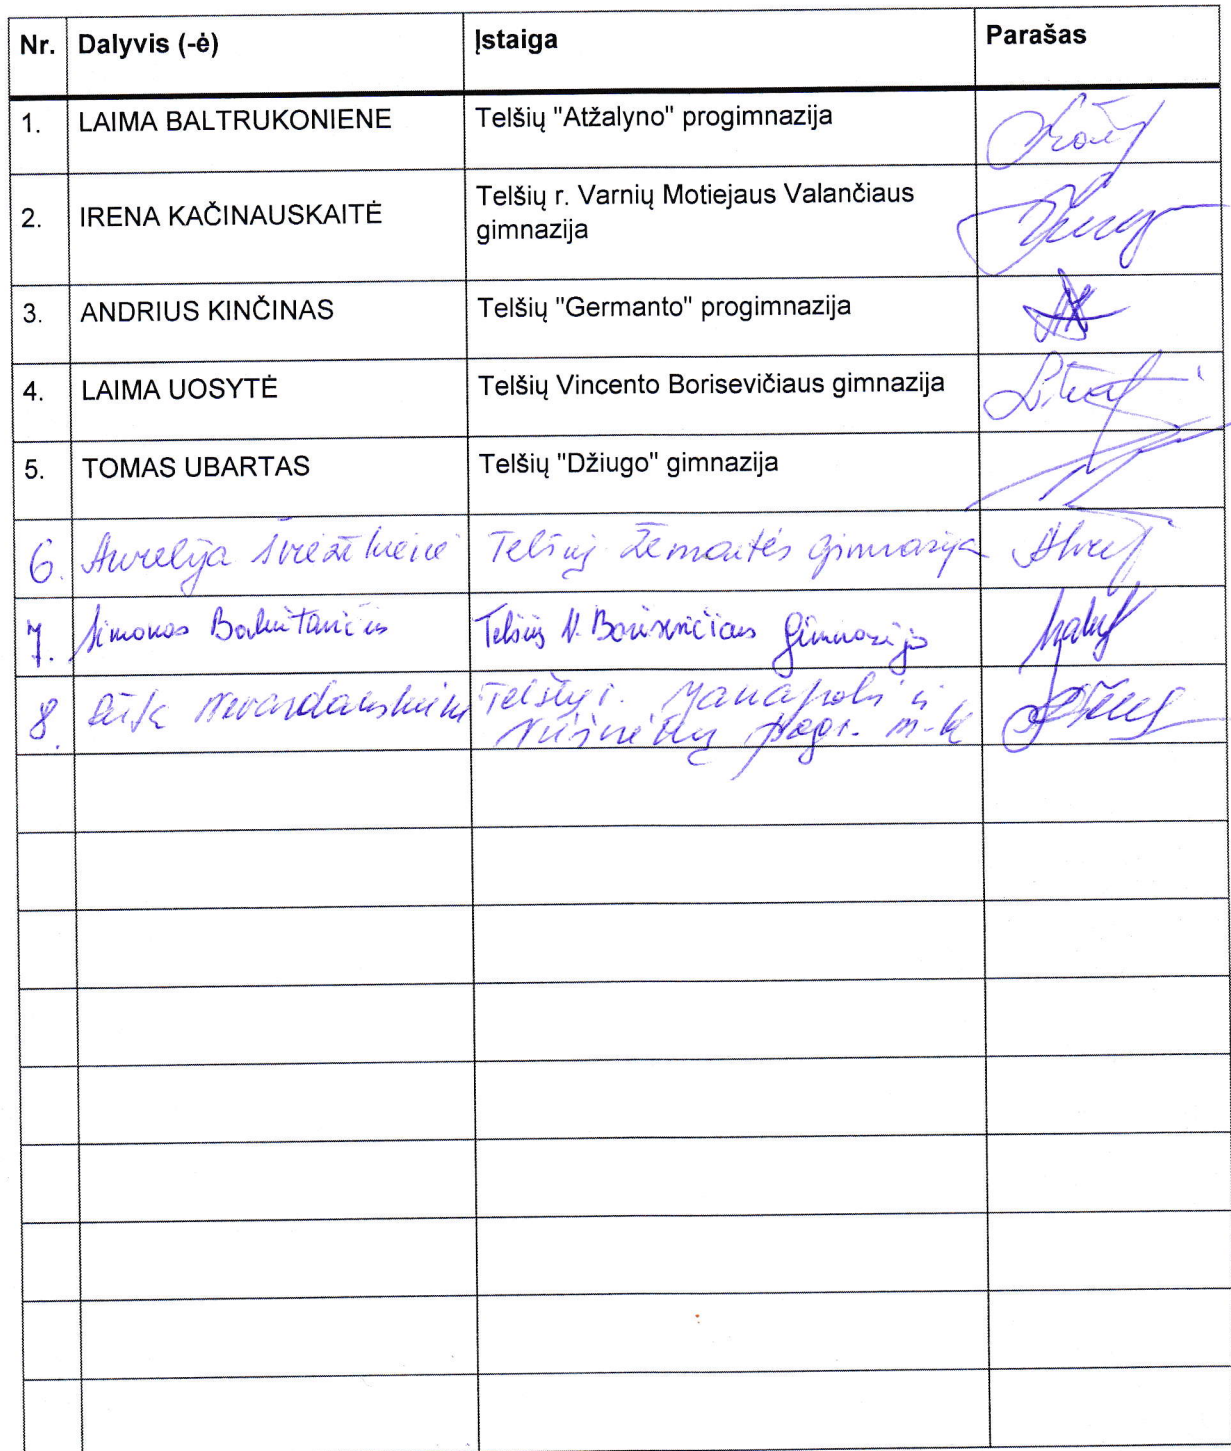 Nr. Dalyvis (-ė) Įstaiga Parašas
1. LAIMA BALTRUKONIENE Telšių "Atžalyno" progimnazija
2. IRENA KAČINAUSKAITĖ Telšių r. Varnių Motiejaus Valančiaus
gimnazija
3. ANDRIUS KINČINAS Telšių "Germanto" progimnazija
4. LAIMA UOSYTĖ Telšių Vincento Borisevičiaus gimnazija
5. TOMAS UBARTAS Telšių "Džiugo" gimnazija
6. Aurelija Telšių Žemaitės gimnazija
7. Simonas Telšių V. Borisevičiaus gimnazija
8. Telšių r.
pagr. m-k